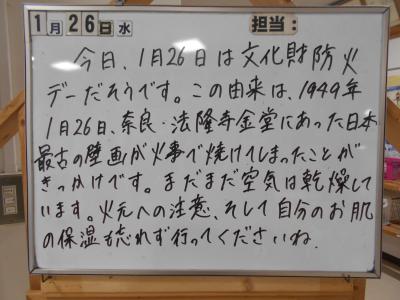 1月26日水 担当:
今日、1月26日は文化財防火
デーだそうです。この由来は、1949年
1月26日、奈良・法隆寺金堂にあった日本
最古の壁画が火事で焼けてしまったことが
きっかけです。まだまだ空気は乾燥して
います。火元への注意、そして自分のお肌
の保湿も忘れず行ってくださいね.